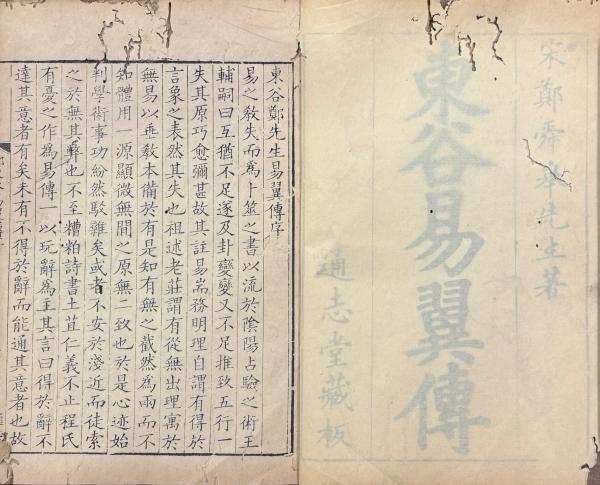 宋鄭舜舉先生著
東谷易翼傳
通志堂藏板
東谷鄭先生易翼傳序
易之敎失而爲卜筮之書以流於陰陽占驗之術王
輔嗣曰互猶不足遂及卦變變又不足推致五行一
失其原巧愈彌甚故其註易耑務明理自謂有得於
言象之表然其失也祖述老莊謂有從無出理寓於
無易以垂敎本備於有是知有無之截然爲兩而不
知體用一源顯微無間之原無二致也於是心迹始
判學術事功紛然駁雜矣或者不安於淺近而徒索
之於無其弊也不至糟粕詩書土苴仁義不止程氏
有憂之作爲易傳一以玩辭爲主其言曰得於辭不
達其意者有矣未有不得於辭而能通其意者也故